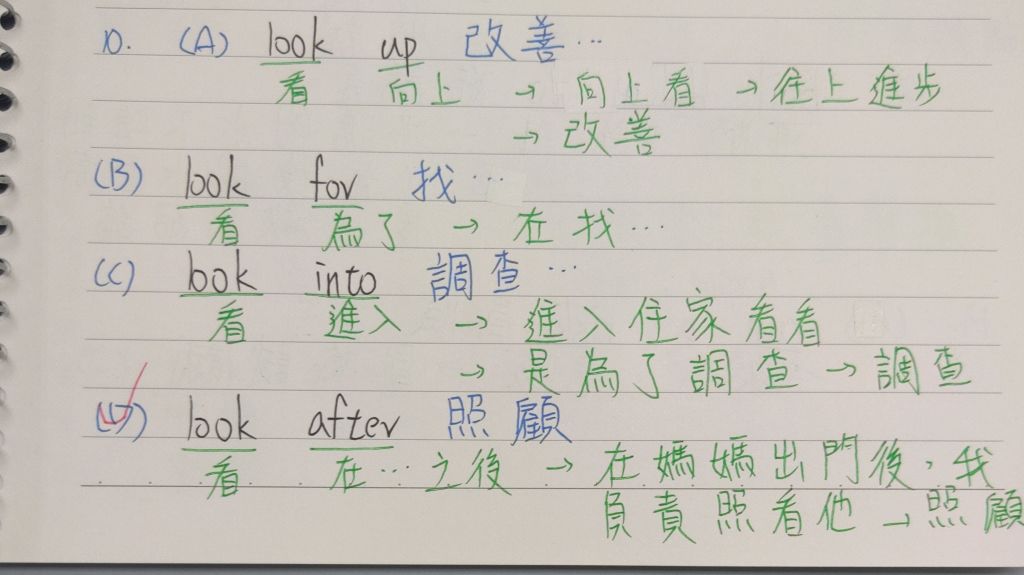 10. (A) look up 改善…
看 向上 → 向上看 → 往上進步
→ 改善
(B) look for 找…
看 為了 → 在找…
(C) look into 調查…
看 進入 → 進入住家看看
→ 是為了調查 → 調查
(D) look after 照顧
看 在…之後 → 在媽媽出門後，我
負責照看他 → 照顧